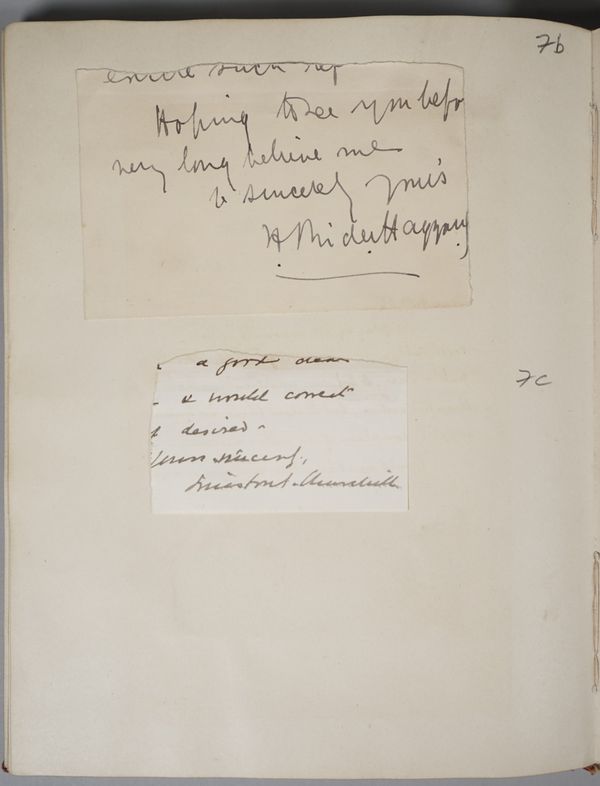 7b
such
Hoping to see you befo
very long believe me
sincerely yours
H Rider Haggard
7c
a good deal
& would correct
desired -
Yours sincerely,
Winston S. Churchill